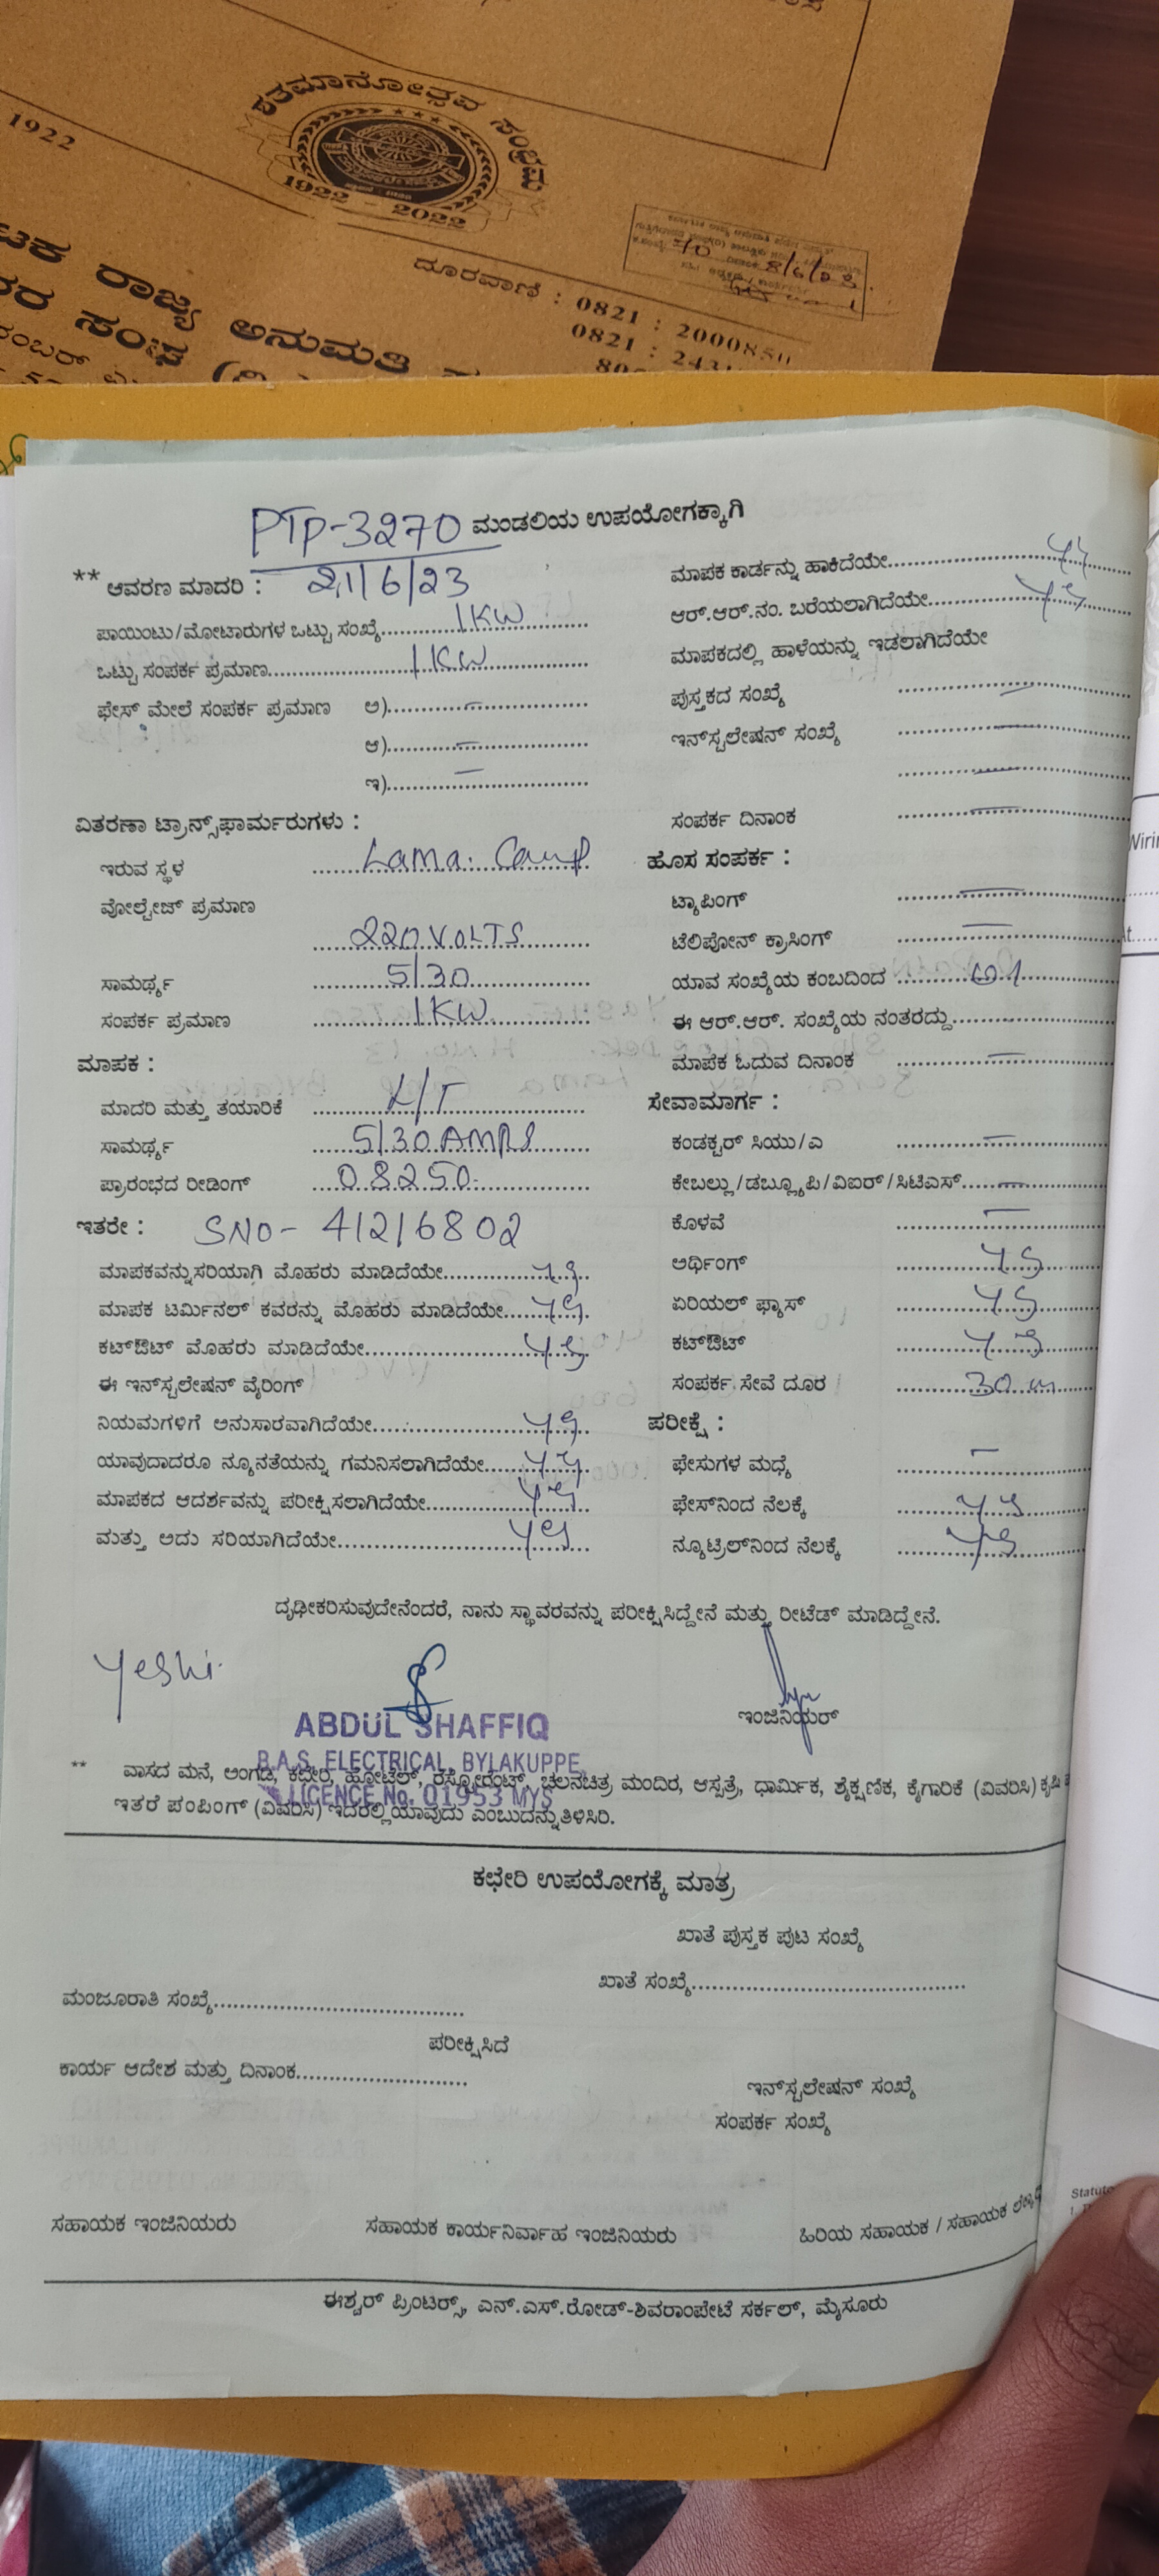 1922
ಶತಮಾನೋತ್ಸವ ಸಂಭ್ರಮ
1922 - 2022
ರಾಜ್ಯ ಅನುಮತಿ
ಸಂಘ
ದೂರವಾಣಿ : 0821 : 2000850
0821 : 243
80
8/6/23
PTP-3270 ಮಂಡಲಿಯ ಉಪಯೋಗಕ್ಕಾಗಿ
** ಆವರಣ ಮಾದರಿ : 21/6/23
ಪಾಯಿಂಟು/ಮೋಟಾರುಗಳ ಒಟ್ಟು ಸಂಖ್ಯೆ 1KW
ಒಟ್ಟು ಸಂಪರ್ಕ ಪ್ರಮಾಣ 1KW
ಫೇಸ್ ಮೇಲೆ ಸಂಪರ್ಕ ಪ್ರಮಾಣ ಅ) –
ಆ) –
ಇ) –
ವಿತರಣಾ ಟ್ರಾನ್ಸ್‌ಫಾರ್ಮರುಗಳು :
ಇರುವ ಸ್ಥಳ Lama. Camp
ವೋಲ್ಟೇಜ್ ಪ್ರಮಾಣ
220 VOLTS
ಸಾಮರ್ಥ್ಯ 5/30
ಸಂಪರ್ಕ ಪ್ರಮಾಣ 1KW
ಮಾಪಕ :
ಮಾದರಿ ಮತ್ತು ತಯಾರಿಕೆ L/T
ಸಾಮರ್ಥ್ಯ 5/30 AMPS
ಪ್ರಾರಂಭದ ರೀಡಿಂಗ್ 08250
ಇತರೇ : SNO- 41216802
ಮಾಪಕವನ್ನುಸರಿಯಾಗಿ ಮೊಹರು ಮಾಡಿದೆಯೇ ys
ಮಾಪಕ ಟರ್ಮಿನಲ್ ಕವರನ್ನು ಮೊಹರು ಮಾಡಿದೆಯೇ ys
ಕಟ್‌ಔಟ್ ಮೊಹರು ಮಾಡಿದೆಯೇ ys
ಈ ಇನ್‌ಸ್ಟಲೇಷನ್ ವೈರಿಂಗ್
ನಿಯಮಗಳಿಗೆ ಅನುಸಾರವಾಗಿದೆಯೇ ys
ಯಾವುದಾದರೂ ನ್ಯೂನತೆಯನ್ನು ಗಮನಿಸಲಾಗಿದೆಯೇ ys
ಮಾಪಕದ ಆದರ್ಶವನ್ನು ಪರೀಕ್ಷಿಸಲಾಗಿದೆಯೇ ys
ಮತ್ತು ಅದು ಸರಿಯಾಗಿದೆಯೇ ys
ಮಾಪಕ ಕಾರ್ಡನ್ನು ಹಾಕಿದೆಯೇ ys
ಆರ್.ಆರ್.ನಂ. ಬರೆಯಲಾಗಿದೆಯೇ ys
ಮಾಪಕದಲ್ಲಿ ಹಾಳೆಯನ್ನು ಇಡಲಾಗಿದೆಯೇ
ಪುಸ್ತಕದ ಸಂಖ್ಯೆ –
ಇನ್‌ಸ್ಟಲೇಷನ್ ಸಂಖ್ಯೆ –
–
ಸಂಪರ್ಕ ದಿನಾಂಕ –
ಹೊಸ ಸಂಪರ್ಕ :
ಟ್ಯಾಪಿಂಗ್ –
ಟೆಲಿಪೋನ್ ಕ್ರಾಸಿಂಗ್ –
ಯಾವ ಸಂಖ್ಯೆಯ ಕಂಬದಿಂದ
ಈ ಆರ್.ಆರ್. ಸಂಖ್ಯೆಯ ನಂತರದ್ದು
ಮಾಪಕ ಓದುವ ದಿನಾಂಕ –
ಸೇವಾಮಾರ್ಗ :
ಕಂಡಕ್ಟರ್ ಸಿಯು/ಎ –
ಕೇಬಲ್ಲು/ಡಬ್ಲ್ಯೂಪಿ/ವಿಐರ್/ಸಿಟಿಎಸ್ –
ಕೊಳವೆ –
ಅರ್ಥಿಂಗ್ ys
ಏರಿಯಲ್ ಫ್ಯೂಸ್ ys
ಕಟ್‌ಔಟ್ ys
ಸಂಪರ್ಕ ಸೇವೆ ದೂರ 30 m
ಪರೀಕ್ಷೆ :
ಫೇಸುಗಳ ಮಧ್ಯೆ –
ಫೇಸ್‌ನಿಂದ ನೆಲಕ್ಕೆ ys
ನ್ಯೂಟ್ರಲ್‌ನಿಂದ ನೆಲಕ್ಕೆ ys
ದೃಢೀಕರಿಸುವುದೇನೆಂದರೆ, ನಾನು ಸ್ಥಾವರವನ್ನು ಪರೀಕ್ಷಿಸಿದ್ದೇನೆ ಮತ್ತು ರೀಟೆಡ್ ಮಾಡಿದ್ದೇನೆ.
Yeshi
ABDUL SHAFFIQ
B.A.S. ELECTRICAL, BYLAKUPPE,
LICENCE No. 01953 MYS
ಇಂಜಿನಿಯರ್
** ವಾಸದ ಮನೆ, ಅಂಗಡಿ, ಕಛೇರಿ, ಹೋಟೆಲ್, ರೆಸ್ಟೋರೆಂಟ್, ಚಲನಚಿತ್ರ ಮಂದಿರ, ಆಸ್ಪತ್ರೆ, ಧಾರ್ಮಿಕ, ಶೈಕ್ಷಣಿಕ, ಕೈಗಾರಿಕೆ (ವಿವರಿಸಿ) ಕೃಷಿ
ಇತರೆ ಪಂಪಿಂಗ್ (ವಿವರಿಸಿ) ಇದರಲ್ಲಿಯಾವುದು ಎಂಬುದನ್ನುತಿಳಿಸಿರಿ.
ಕಛೇರಿ ಉಪಯೋಗಕ್ಕೆ ಮಾತ್ರ
ಖಾತೆ ಪುಸ್ತಕ ಪುಟ ಸಂಖ್ಯೆ
ಖಾತೆ ಸಂಖ್ಯೆ
ಮಂಜೂರಾತಿ ಸಂಖ್ಯೆ
ಪರೀಕ್ಷಿಸಿದೆ
ಕಾರ್ಯ ಆದೇಶ ಮತ್ತು ದಿನಾಂಕ
ಇನ್‌ಸ್ಟಲೇಷನ್ ಸಂಖ್ಯೆ
ಸಂಪರ್ಕ ಸಂಖ್ಯೆ
ಸಹಾಯಕ ಇಂಜಿನಿಯರು ಸಹಾಯಕ ಕಾರ್ಯನಿರ್ವಾಹ ಇಂಜಿನಿಯರು ಹಿರಿಯ ಸಹಾಯಕ / ಸಹಾಯಕ
ಈಶ್ವರ್ ಪ್ರಿಂಟರ್ಸ್, ಎನ್.ಎಸ್.ರೋಡ್-ಶಿವರಾಂಪೇಟೆ ಸರ್ಕಲ್, ಮೈಸೂರು